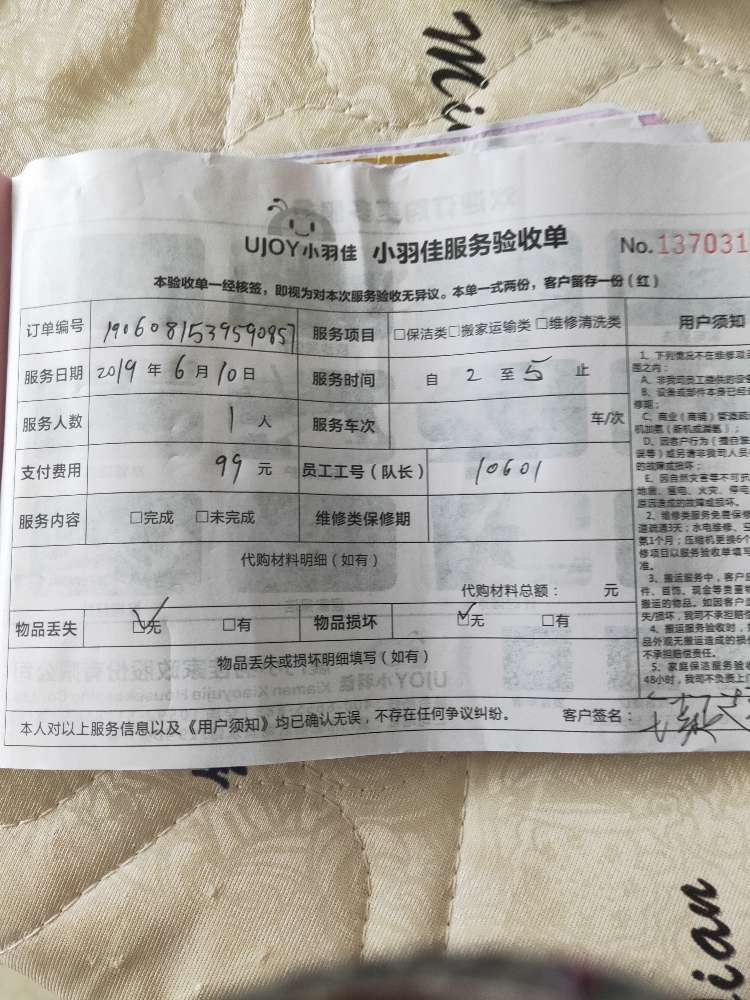 Mi
UJOY小羽佳 小羽佳服务验收单 No.137031
本验收单一经核签，即视为对本次服务验收无异议。本单一式两份，客户留存一份（红）
订单编号 1906081539590857 服务项目 □保洁类□搬家运输类□维修清洗类 用户须知
服务日期 2019 年 6 月 10 日 服务时间 自 2 至 5 止
服务人数 1 人 服务车次 车/次
支付费用 99 元 员工工号（队长） 10601
服务内容 □完成 □未完成 维修类保修期
代购材料明细（如有）
代购材料总额： 元
物品丢失 ☑无 □有 物品损坏 ☑无 □有
物品丢失或损坏明细填写（如有）
本人对以上服务信息以及《用户须知》均已确认无误，不存在任何争议纠纷。 客户签名：
1、下列情况不在维修
围之内：
A、非我司员工提供的设
B、设备或部件本身已经
修期；
C、商业（商铺）管道疏
机加氨（新机或漏氨）；
D、因客户行为（擅自
误等）或另请非我司人员
的故障或损坏；
E、因自然灾害等不可抗
地震、雷电、火灾、停电
原因造成的故障或损坏。
2、维修类服务免费保修
道疏通3天；水电维修、
氨1个月；压缩机更换6个
修项目以服务验收单填写
准。
3、搬运服务中，客户
件、首饰、现金等贵重
搬运的物品。如因客户
失/损坏，我司不承担赔
4、搬运服务验收时，
品外观无搬运造成的损
不承担赔偿责任。
5、家庭保洁服务验收
48小时，我司不负责上门
ian